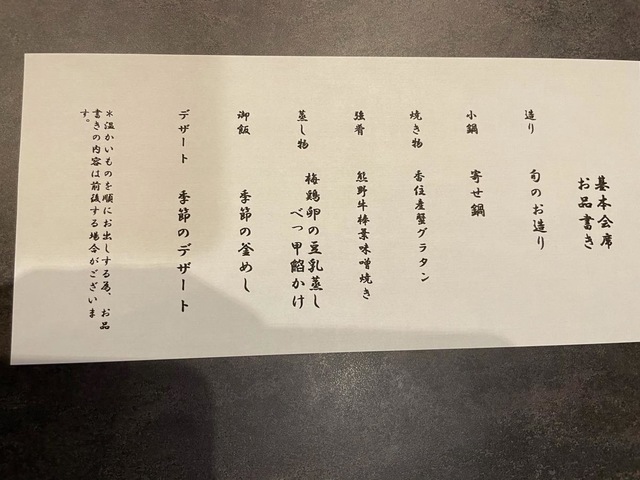 基本会席
お品書き
造り 旬のお造り
小鍋 寄せ鍋
焼き物 香住産蟹グラタン
強肴 熊野牛棒葉味噌焼き
蒸し物 梅鶏卵の豆乳蒸し
べっ甲餡かけ
御飯 季節の釜めし
デザート 季節のデザート
＊温かいものを順にお出しする為、お品
書きの内容は前後する場合がございま
す。